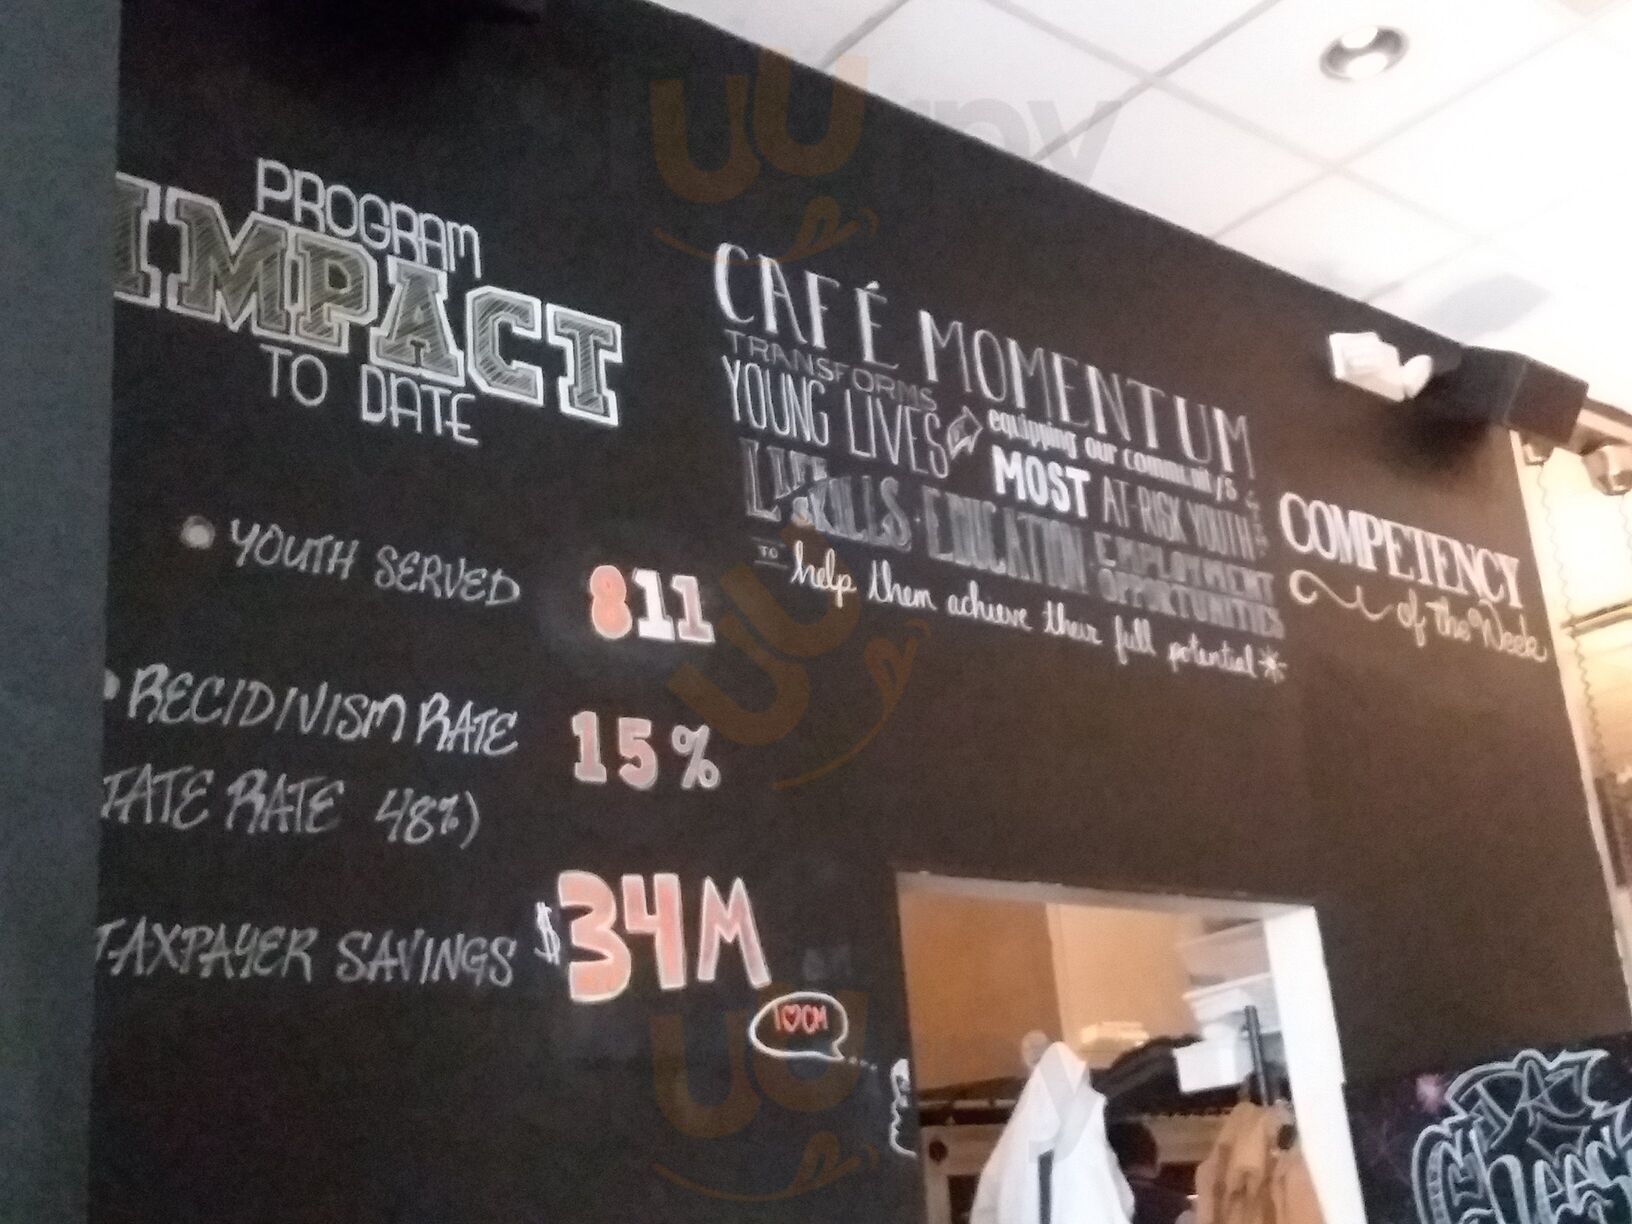 PROGRAM
IMPACT
TO DATE
YOUTH SERVED 811
RECIDIVISM RATE 15%
TATE RATE 48%)
TAXPAYER SAVINGS $34M
I ♥ CM
CAFÉ MOMENTUM
TRANSFORMS
YOUNG LIVES
equipping our
MOST AT-RISK YOUTH
LIFE SKILLS · EDUCATION
EMPLOYMENT
OPPORTUNITIES
TO help them achieve their full potential
COMPETENCY
of the Week